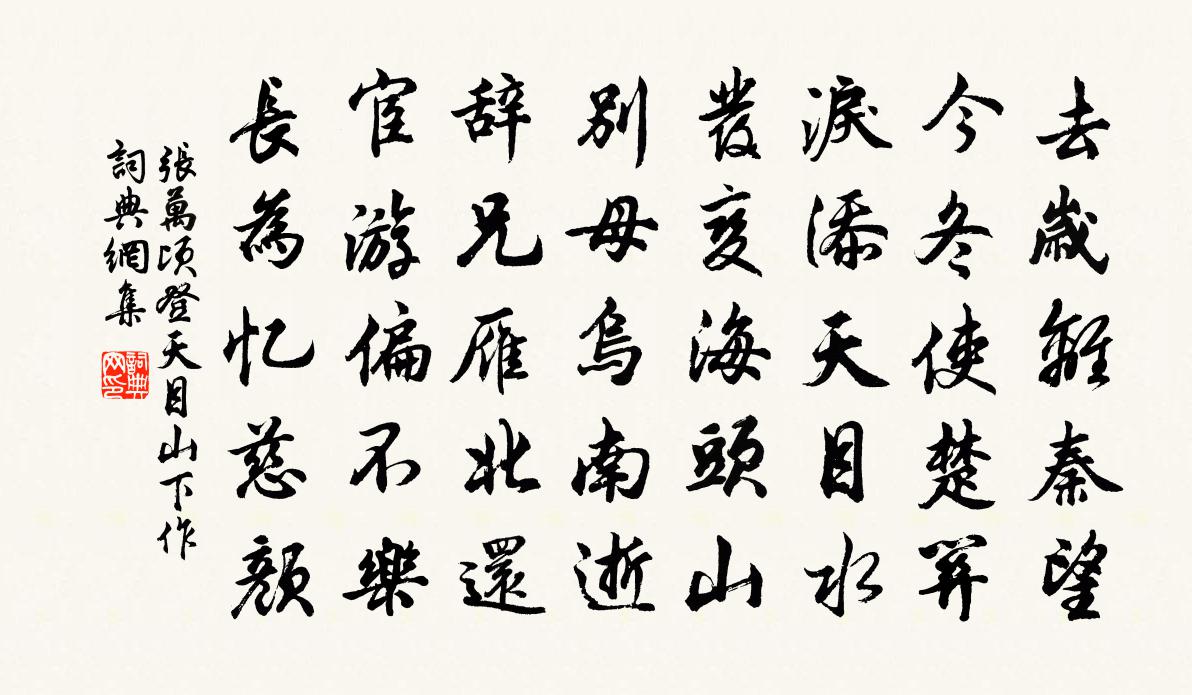 去歲離秦望
今冬使楚關
淚添天目水
發變海頭山
別母烏南逝
辞兄雁北還
宦游偏不樂
長為忆慈顏
張萬頃登天目山下作
詞典網集
詞典网印